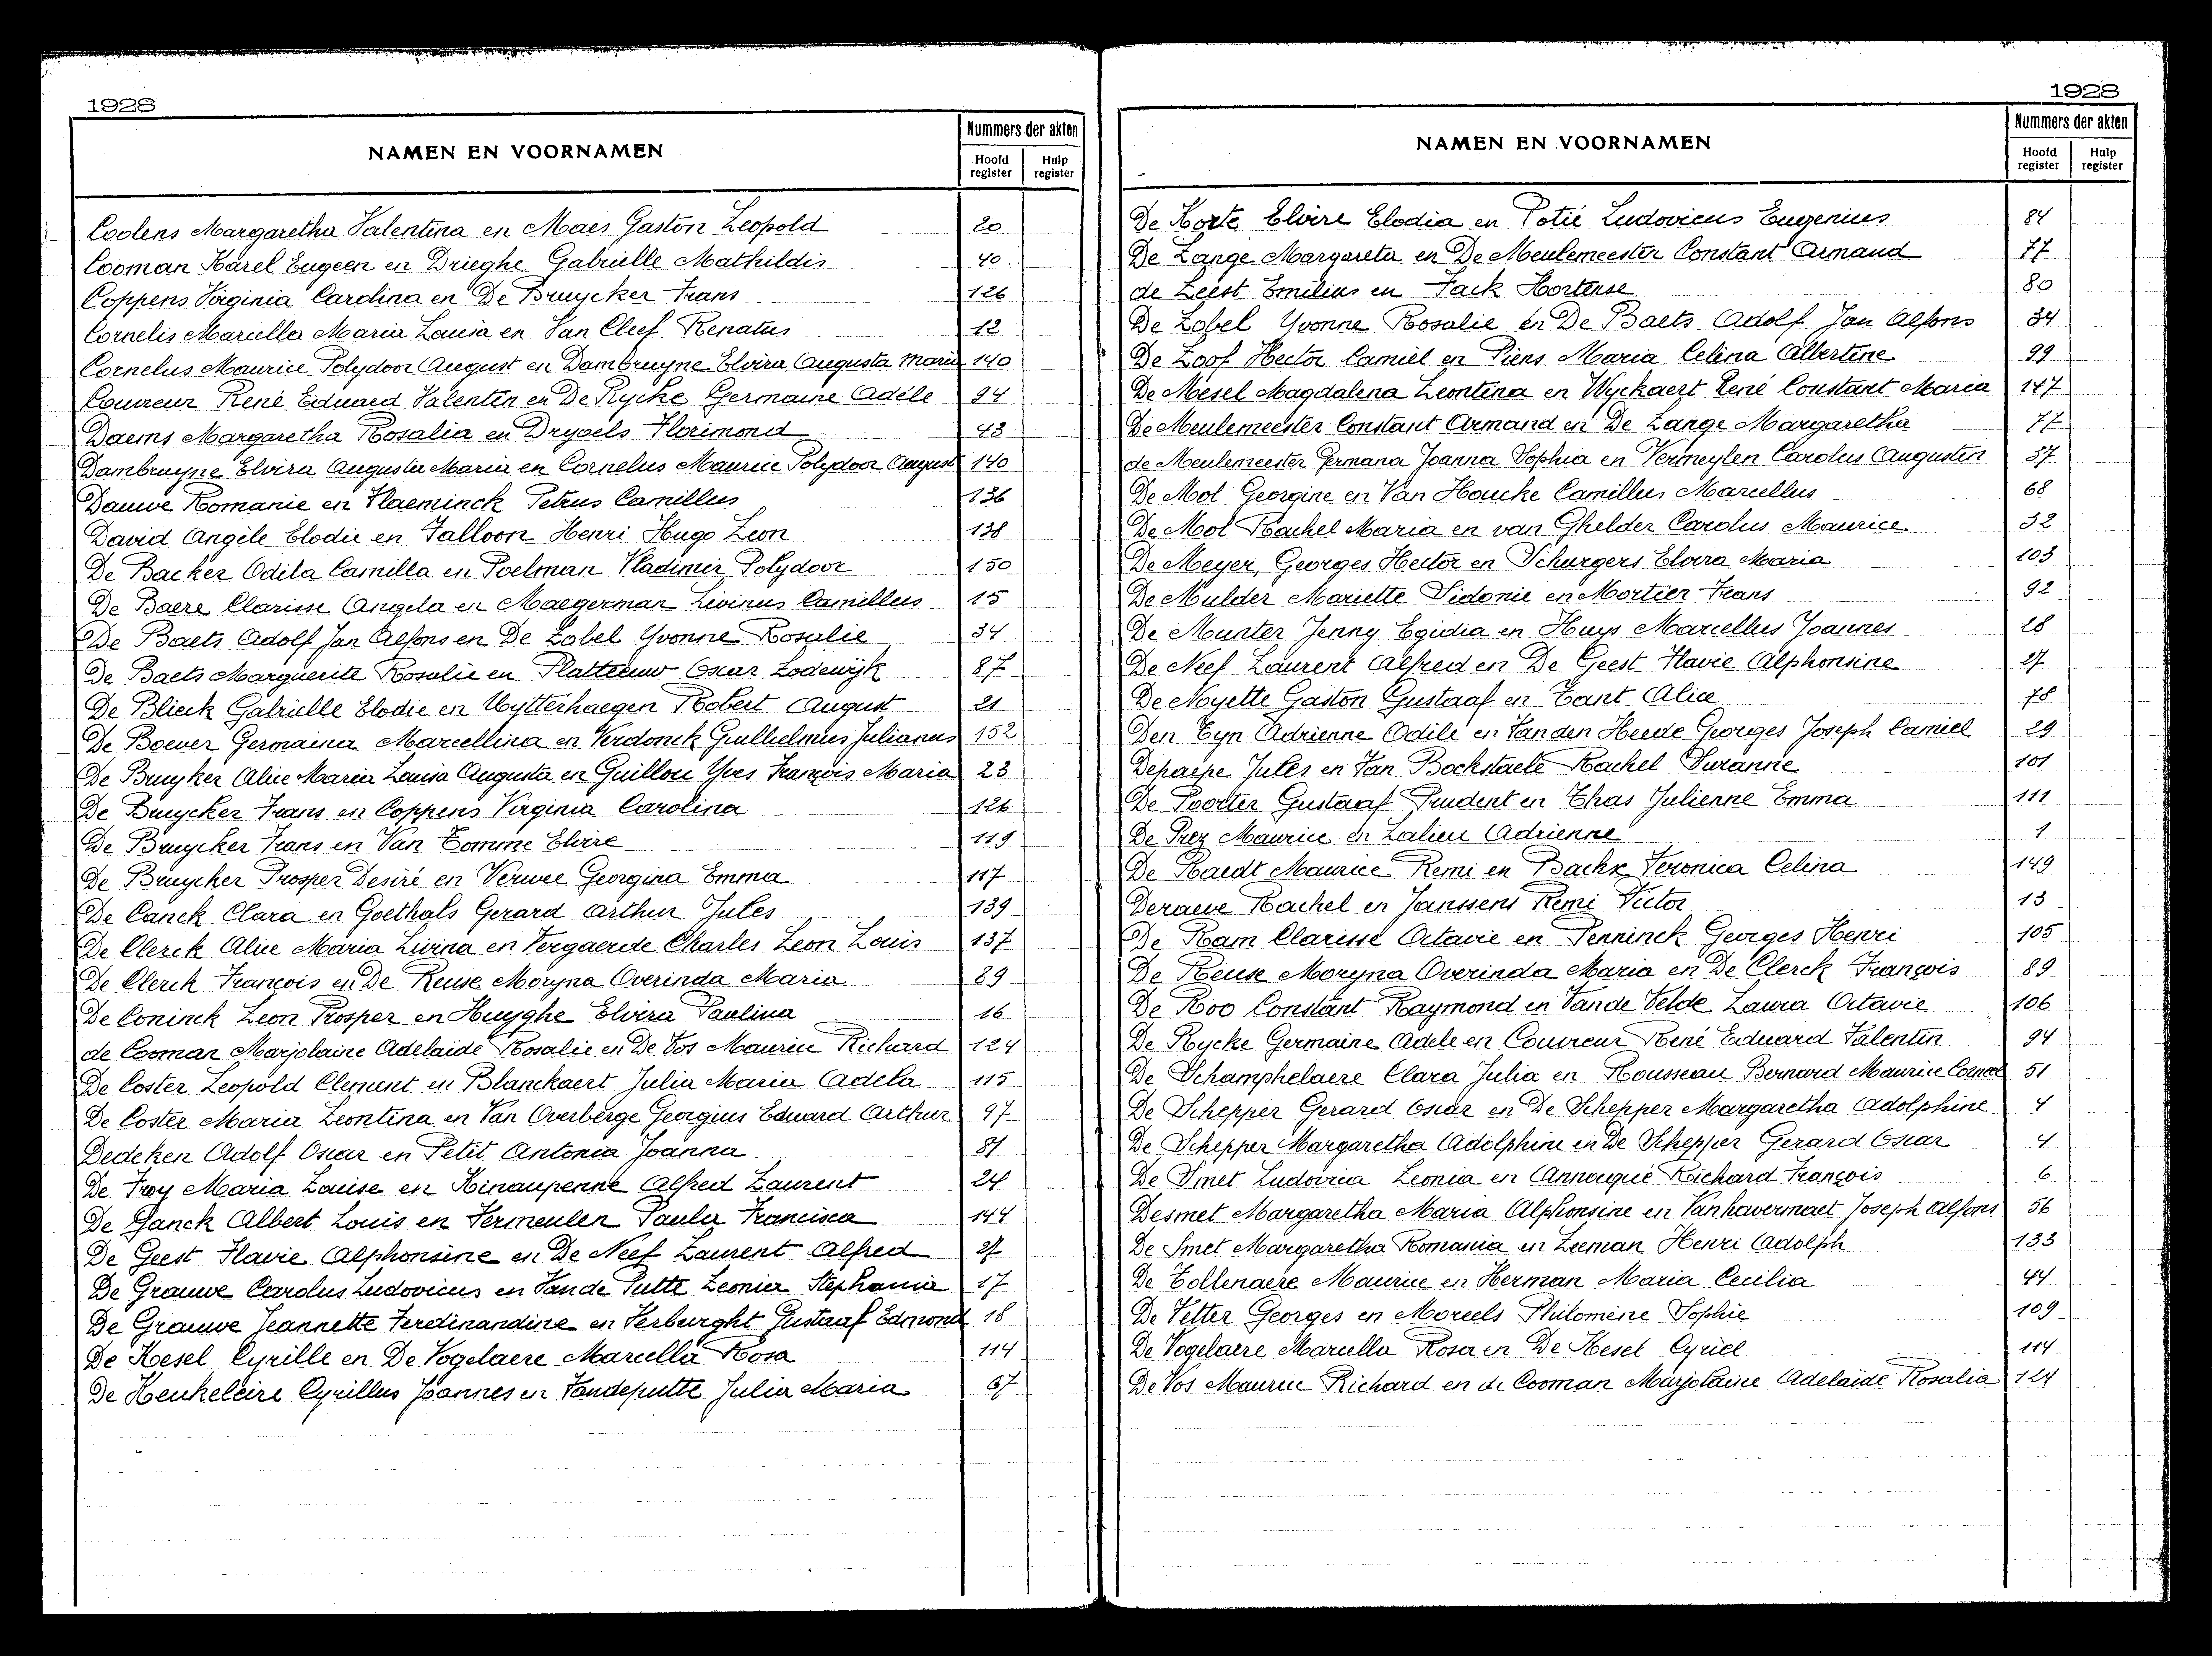 1928
NAMEN EN VOORNAMEN
Nummers der akten
Hoofd register
Hulp register
Coolens Margaretha Valentina en Maes Gaston Leopold 20
Cooman Karel Eugeen en Drieghe Gabrielle Mathildis 40
Coppens Virginia Carolina en De Bruycker Frans 126
Cornelis Marcella Maria Louisa en Van Cleef Renatus 12
Cornelus Maurice Polydoor August en Dambruyne Elvira Augusta Maria 140
Couvreur René Eduard Valentin en De Rycke Germaine Adéle 94
Daems Margaretha Rosalia en Drypels Florimond 43
Dambruyne Elvira Augusta Maria en Cornelus Maurice Polydoor August 140
Dauwe Romanie en Vlaeminck Petrus Camillus 136
David Angèle Elodie en Talloon Henri Hugo Leon 138
De Backer Odila Camilla en Poelman Vladimir Polydoor 150
De Baere Clarisse Angela en Maegerman Livinus Camillus 15
De Baets Adolf Jan Alfons en De Lobel Yvonne Rosalie 34
De Baets Marguerite Rosalie en Platteeuw Oscar Lodewijk 87
De Blieck Gabrielle Elodie en Uytterhaegen Robert August 21
De Boever Germaina Marcellina en Verdonck Guilielmus Julianus 152
De Bruyker Alice Maria Louisa Augusta en Guillou Yves François Maria 23
De Bruycker Frans en Coppens Virginia Carolina 126
De Bruycker Frans en Van Tomme Elvire 119
De Bruycker Prosper Desiré en Verwee Georgina Emma 117
De Canck Clara en Goethals Gerard Arthur Jules 139
De Clerck Alice Maria Livina en Vergaerde Charles Leon Louis 137
De Clerck François en De Reuse Moryna Overinda Maria 89
De Coninck Leon Prosper en Huyghe Elvira Paulina 16
de Cooman Marjolaine Adelaide Rosalie en De Vos Maurice Richard 124
De Coster Leopold Clement en Blanckaert Julia Maria Adela 115
De Coster Maria Leontina en Van Overberge Georgius Eduard Arthur 97
Dedeken Adolf Oscar en Petit Antonia Joanna 81
De Froy Maria Louise en Kinaupenne Alfred Laurent 24
De Ganck Albert Louis en Vermeulen Paula Francisca 144
De Geest Flavie Alphonsine en De Neef Laurent Alfred 27
De Grauwe Carolus Ludovicus en Van de Putte Leonia Stephania 17
De Grauwe Jeannette Ferdinandine en Verburght Gustaaf Edmond 18
De Kesel Cyrille en De Vogelaere Marcella Rosa 114
De Keukeleire Cyrillus Joannes en Vandeputte Julia Maria 67
1928
NAMEN EN VOORNAMEN
Nummers der akten
Hoofd register
Hulp register
De Korte Elvire Elodia en Potié Ludovicus Eugenius 84
De Lange Margareta en De Meulemeester Constant Armand 77
de Leest Emilius en Fack Hortense 80
De Lobel Yvonne Rosalie en De Baets Adolf Jan Alfons 34
De Loof Hector Camiel en Piens Maria Celina Albertine 99
De Mesel Magdalena Leontina en Wyckaert René Constant Maria 147
De Meulemeester Constant Armand en De Lange Margaretha 77
de Meulemeester Germana Joanna Sophia en Vermeylen Carolus Augustin 37
De Mol Georgine en Van Houcke Camillus Marcellus 68
De Mol Rachel Maria en van Ghelder Carolus Maurice 32
De Meyer, Georges Hector en Schurgers Elvira Maria 103
De Mulder Mariette Sidonie en Mortier Frans 92
De Munter Jenny Egidia en Huys Marcellus Joannes 28
De Neef Laurent Alfred en De Geest Flavie Alphonsine 27
De Noyette Gaston Gustaaf en Tant Alice 78
Den Tyn Adrienne Odile en Van den Heede Georges Joseph Camiel 29
Depaepe Jules en Van Bockstaele Rachel Suzanne 101
De Poorter Gustaaf Prudent en Thas Julienne Emma 111
De Prez Maurice en Lalieu Adrienne 1
De Raedt Maurice Remi en Backx Veronica Celina 149
Deraeve Rachel en Janssens Remi Victor 13
De Ram Clarisse Octavie en Penninck Georges Henri 105
De Reuse Moryna Overinda Maria en De Clerck François 89
De Roo Constant Raymond en Van de Velde Laura Octavie 106
De Rycke Germaine Adele en Couvreur René Eduard Valentin 94
De Schamphelaere Clara Julia en Rousseau Bernard Maurice Corneel 51
De Schepper Gerard Oscar en De Schepper Margaretha Adolphine 4
De Schepper Margaretha Adolphine en De Schepper Gerard Oscar 4
De Smet Ludovica Leonia en Annocqué Richard François 6
Desmet Margaretha Maria Alphonsine en Vanhavermaet Joseph Alfons 56
De Smet Margaretha Romania en Leeman Henri Adolph 133
De Tollenaere Maurice en Herman Maria Cecilia 44
De Vetter Georges en Moreels Philomène Sophie 109
De Vogelaere Marcella Rosa en De Kesel Cyriel 114
De Vos Maurice Richard en de Cooman Marjolaine Adelaïde Rosalia 124